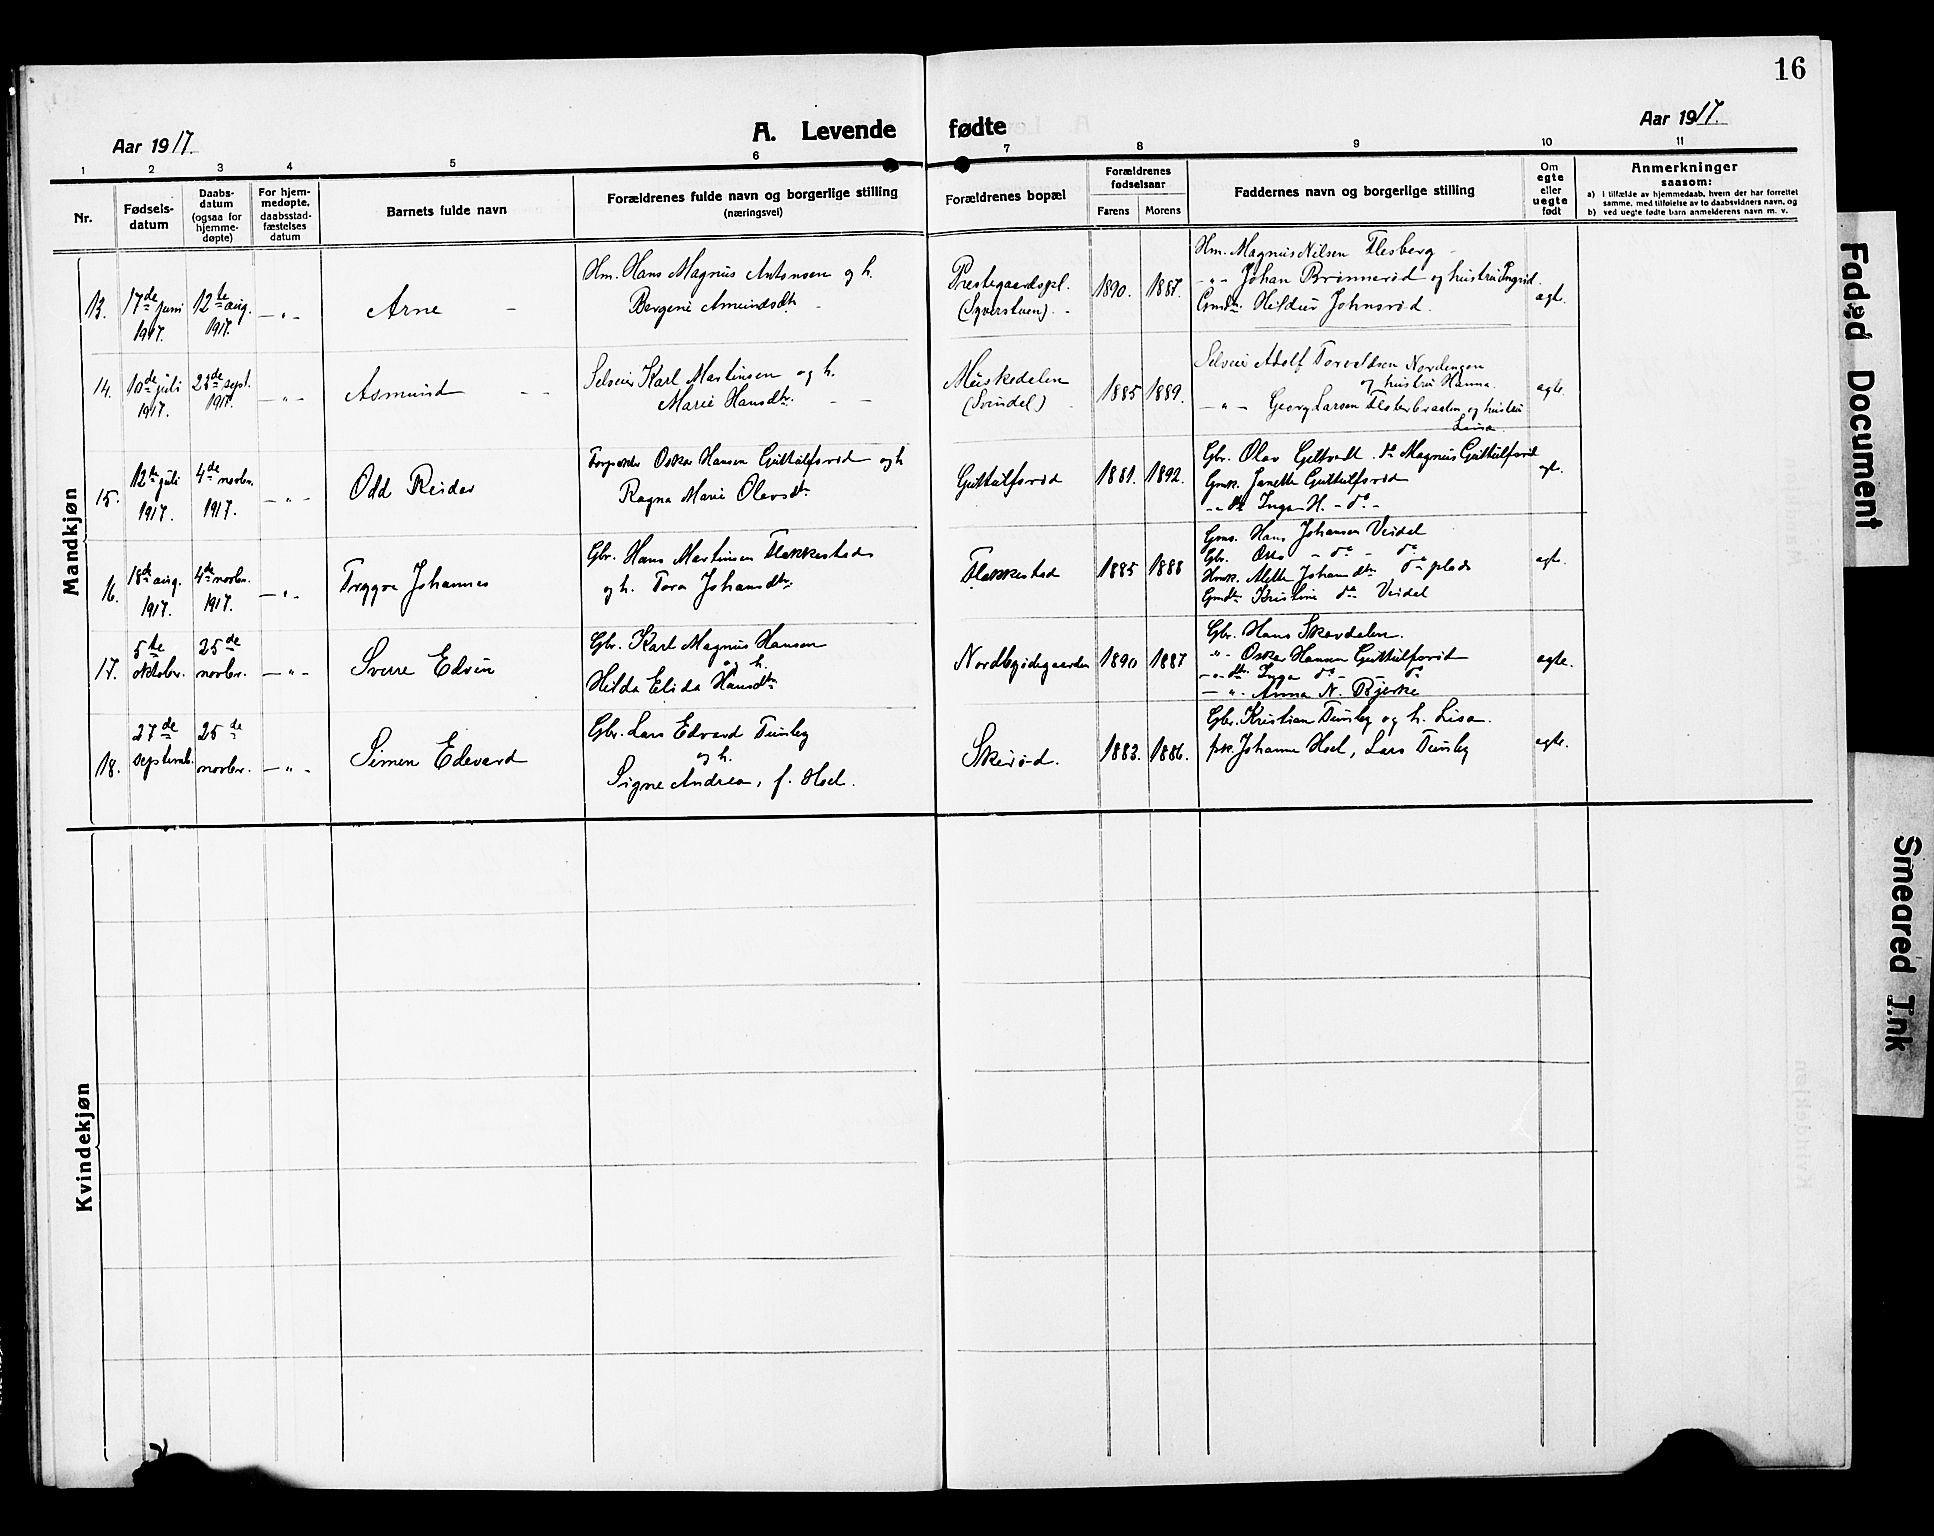 16
Aar 1917.
A. Levende fødte
Aar 1917.
1 2 3 4 5 6 7 8 9 10 11
Nr.
Fødsels-
datum
Daabs-
datum
(ogsaa for
hjemme-
døpte)
For hjem-
medøpte,
daabsstad-
fæstelses
datum
Barnets fulde navn
Forældrenes fulde navn og borgerlige stilling
(næringsvei)
Forældrenes bopæl
Forældrenes
fødselsaar
Farens
Morens
Faddernes navn og borgerlige stilling
Om
egte
eller
uegte
født
Anmerkninger
saasom:
a) i tilfælde av hjemmedaab, hvem der har forrettet
samme, med tilføielse av to daabsvidners navn, og
b) ved uegte fødte barn anmelderens navn m. v.
Mandkjøn
13.
17de juni
1917.
12te aug.
1917.
- „ -
Arne
Hm. Hans Magnus Antonsen og h.
Bergine Amundsdtr.
Prestegaardspl.
(Syverstuen).
1890.
1887.
Hm. Magnus Nilsen Flesberg
- „ - Johan Brønnerød og hustru Ingrid.
Gmdtr. Hildur Johnsrød.
egte.
14.
10de juli
1917.
23de sept.
1917.
- „ -
Asmund
Selveier Karl Martinsen og h.
Marie Hansdtr.
Muskedalen
(Svindal)
1885
1889.
Selveier Adolf Torvaldsen Nordengen
og hustru Hanna.
- „ - Georg Larsen og hustru
Lina.
egte.
15.
12te juli
1917.
4de novbr.
1917.
- „ -
Odd Reidar
Oskar Hansen Guttulfsrød og h
Ragna Marie Olavsdtr.
Guttulfsrød
1881.
1892.
Gbr. Olav Gultvedt. do Magnus Guttulfsrød
Gmk. Janette Guttulfsrød
- „ dtr Inga H. - do -
egt.
16.
18de aug.
1917.
4de novbr.
1917.
- „ -
Trygve Johannes
Gbr. Hans Martinsen Flakkestad
og h. Tora Johansdtr.
Flakkestad
1885
1888
Gms. Hans Johansen Veidal
Gbr. Otto - do - do
Hmk. Alette Johansdtr. do plads
Gmdtr. Kristine do Veidal
egte.
17.
5te
oktobr.
25de
novbr.
- „ -
Sverre Edvin
Gbr. Karl Magnus Hansen
og h.
Hilda Elida Hansdtr
Nordbygdegaarden
1890
1887
Gbr. Hans Skavdalen.
„ - Oskar Hansen Guttulfsrød
- „ - dtr. Inga do - do
- „ - Anna N. Bjerke
egte.
18.
27de
septemb.
25de
novbr.
- „ -
Simen Edvard
Gbr. Lars Edvard Tunsby
og h.
Signe Andrea, f. Hoel.
Skeirød.
1883.
1886.
Gbr. Kristian Tunsby og h. Lisa.
pk. Johanne Hoel, Lars Tunsby
egte.
Kvindekjøn
Faded Document
Smeared Ink